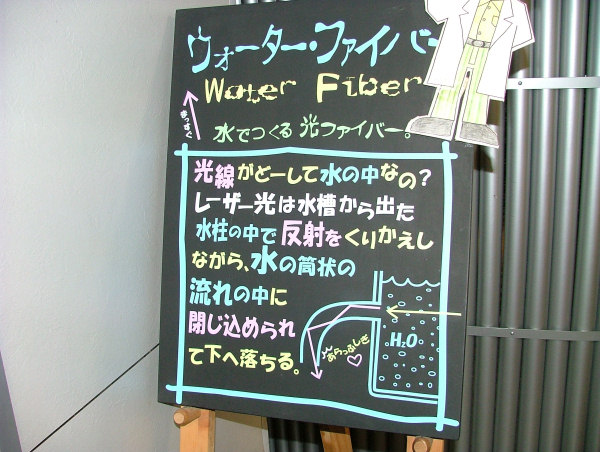 ウォーター・ファイバー
Water Fiber
まっすぐ
水でつくる 光ファイバー。
光線がどーして水の中なの?
レーザー光は水槽から出た
水柱の中で反射をくりかえし
ながら、水の筒状の
流れの中に
閉じ込められ
て下へ落ちる。
H₂O
あらっふしぎ